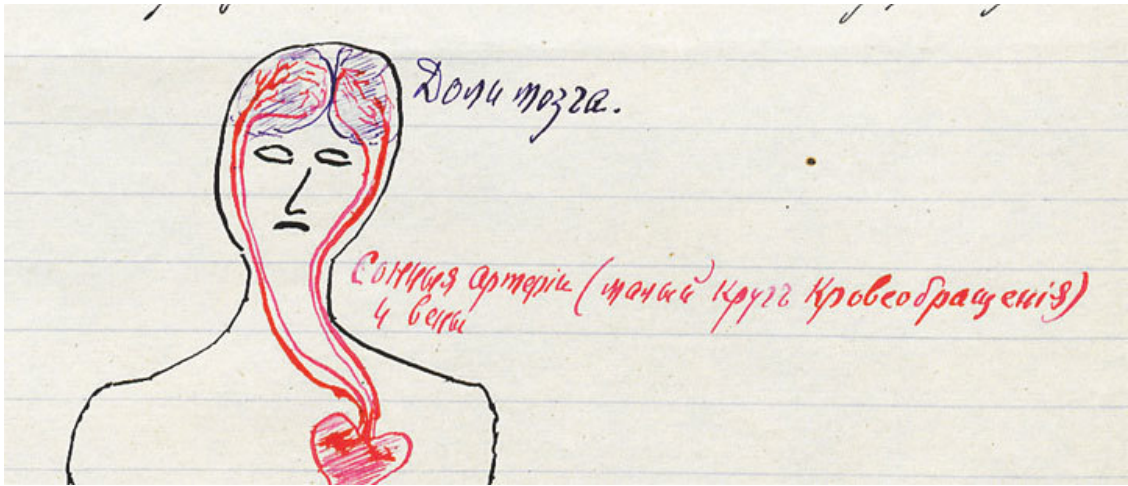 Доли мозга.
Сонныя артеріи (малый кругъ кровеобращенія)
и вены